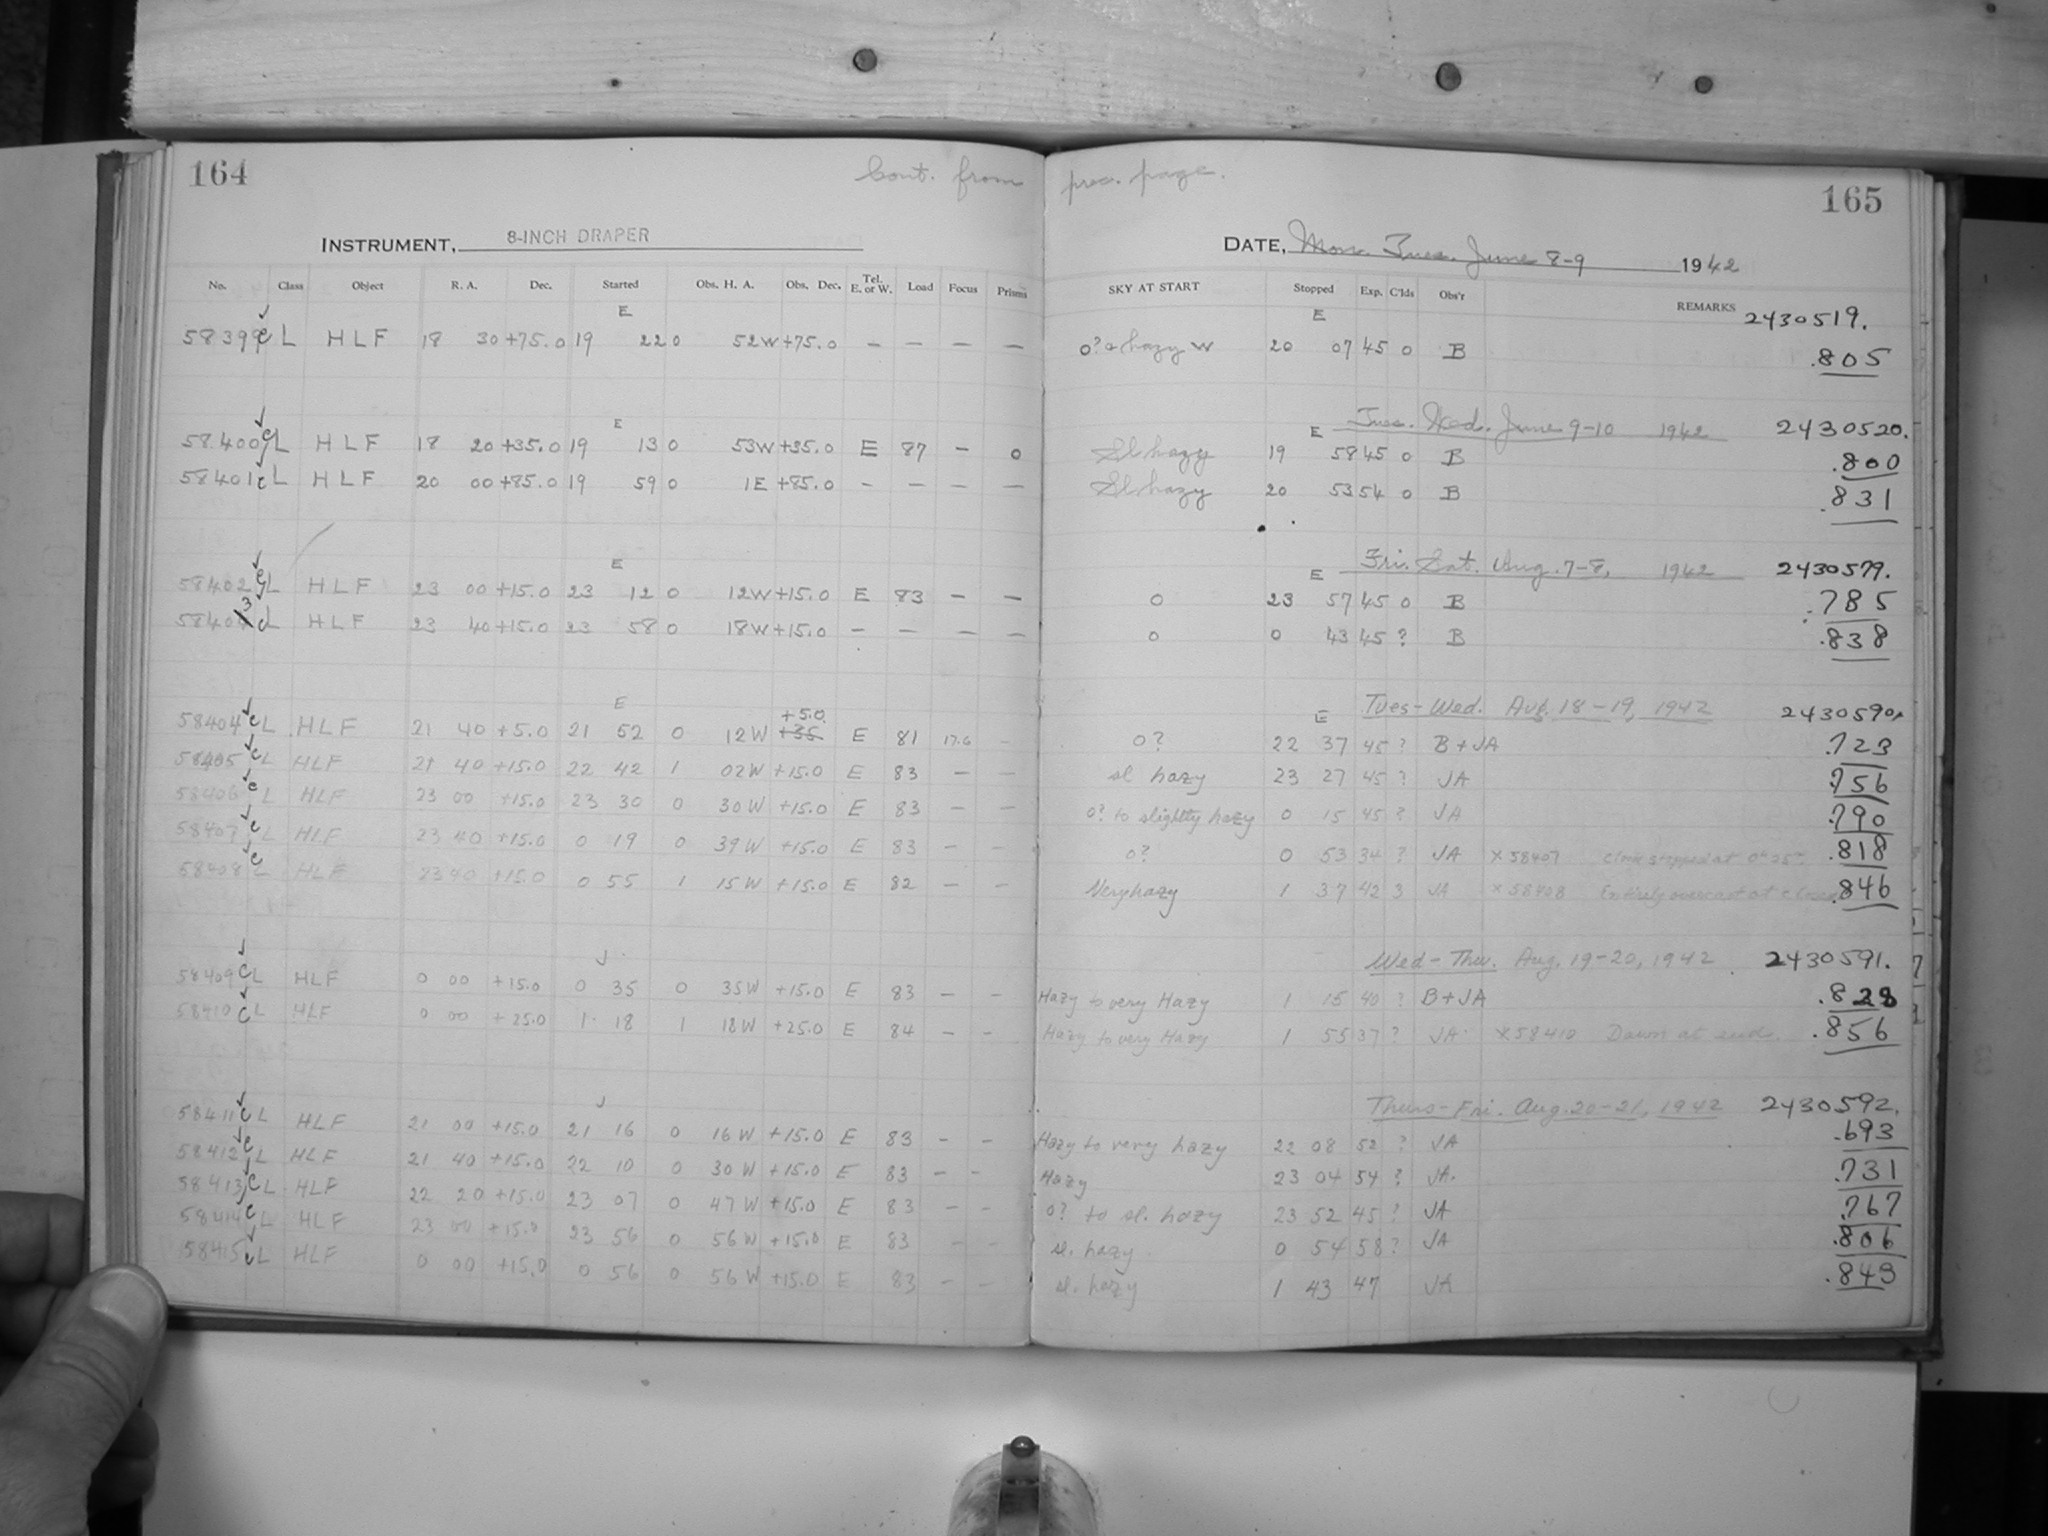 164
Cont. from prec. page.
165
INSTRUMENT, 8-INCH DRAPER
DATE, Mon. Tues. June 8-9 1942
No. Class Object R. A. Dec. Started Obs. H. A. Obs. Dec. Tel. E. or W. Load Focus Prisms SKY AT START Stopped Exp. C'lds Obs'r REMARKS
E E 2430519.
58399 c L HLF 18 30 +75.0 19 22 0 52W +75.0 — — — — 0? & hazy W 20 07 45 0 B .805
E E Tues. Wed. June 9-10 1942 2430520.
58400 c L HLF 18 20 +35.0 19 13 0 53W +35.0 E 87 — 0 Sl hazy 19 58 45 0 B .800
58401 c L HLF 20 00 +85.0 19 59 0 1E +85.0 — — — — Sl hazy 20 53 54 0 B .831
E E Fri. Sat. Aug. 7-8, 1942 2430579.
58402 c L HLF 23 00 +15.0 23 12 0 12W +15.0 E 83 — — 0 23 57 45 0 B .785
58403 c L HLF 23 40 +15.0 23 58 0 18W +15.0 — — — — 0 0 43 45 ? B .838
E E Tues-Wed. Aug. 18-19, 1942 2430590.
+5.0
58404 c L HLF 21 40 +5.0 21 52 0 12W +35 E 81 17.6 – 0? 22 37 45 ? B+JA .723
58405 c L HLF 21 40 +15.0 22 42 1 02W +15.0 E 83 — — sl hazy 23 27 45 ? JA .756
58406 c L HLF 23 00 +15.0 23 30 0 30W +15.0 E 83 — — 0? to slightly hazy 0 15 45 ? JA .790
58407 c L HLF 23 40 +15.0 0 19 0 39W +15.0 E 83 — — 0? 0 53 34 ? JA ×58407 clock stopped at .818
58408 c L HLF 23 40 +15.0 0 55 1 15W +15.0 E 82 — — Very hazy 1 37 42 3 JA ×58408 Entirely overcast at close .846
J. Wed-Thu. Aug. 19-20, 1942 2430591.
58409 c L HLF 0 00 +15.0 0 35 0 35W +15.0 E 83 — — Hazy to very Hazy 1 15 40 ? B+JA .828
58410 c L HLF 0 00 +25.0 1 18 1 18W +25.0 E 84 — — Hazy to very Hazy 1 55 37 ? JA ×58410 Dawn at end. .856
J Thurs-Fri. Aug. 20-21, 1942 2430592.
58411 c L HLF 21 00 +15.0 21 16 0 16W +15.0 E 83 — — Hazy to very hazy 22 08 52 ? JA .693
58412 c L HLF 21 40 +15.0 22 10 0 30W +15.0 E 83 — — Hazy 23 04 54 ? JA. .731
58413 c L HLF 22 20 +15.0 23 07 0 47W +15.0 E 83 — — 0? to sl. hazy 23 52 45 ? JA .767
58414 c L HLF 23 00 +15.0 23 56 0 56W +15.0 E 83 — — sl. hazy 0 54 58 ? JA .806
58415 c L HLF 0 00 +15.0 0 56 0 56W +15.0 E 83 — — sl. hazy 1 43 47 JA .843